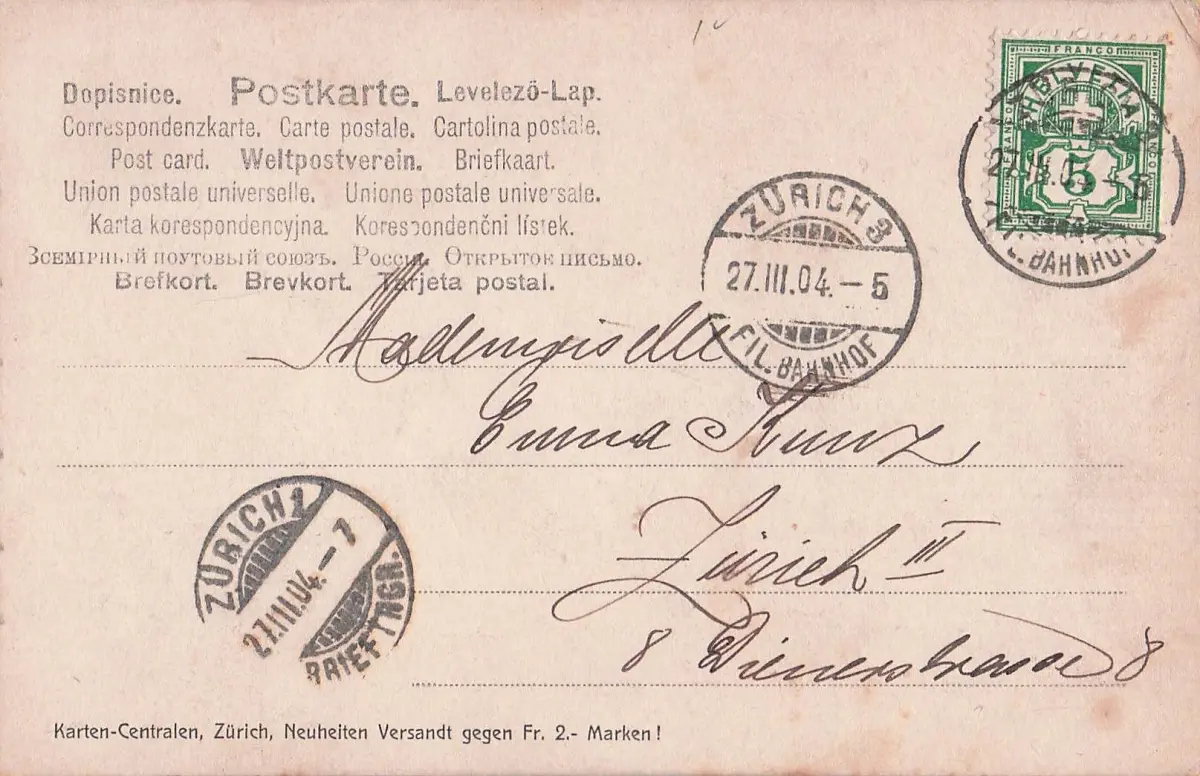 Dopisnice. Postkarte. Levelező-Lap.
Correspondenzkarte. Carte postale. Cartolina postale.
Post card. Weltpostverein. Briefkaart.
Union postale universelle. Unione postale universale.
Karta korespondencyjna. Korespondenční lístek.
Всемірный почтовый союзъ. Россія. Открытое письмо.
Brefkort. Brevkort. Tarjeta postal.
FRANCO
HELVETIA
FRANCO
5
27.III.04.-5
FIL. BAHNHOF
ZÜRICH 3
27.III.04.-5
FIL. BAHNHOF
Mademoiselle
Emma Kunz
Zürich III
8 Dienerstrasse 8
ZÜRICH 1
27.III.04.-7
BRIEFTRGR.
Karten-Centralen, Zürich, Neuheiten Versandt gegen Fr. 2.- Marken!